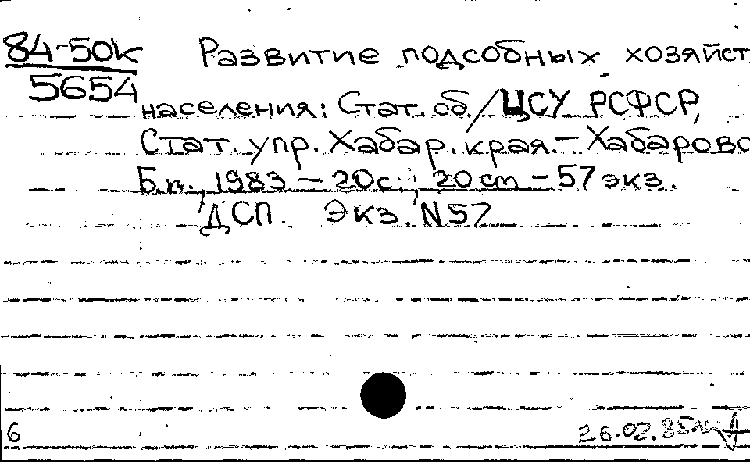 84-50к Развитие подсобных хозяйст
5654
населения: Стат. сб. / ЦСУ РСФСР,
Стат. упр. Хабар. края. – Хабаровс
Б.и., 1983 – 20 с.; 20 см – 57 экз.
ДСП. Экз. N57
6
26.02.85